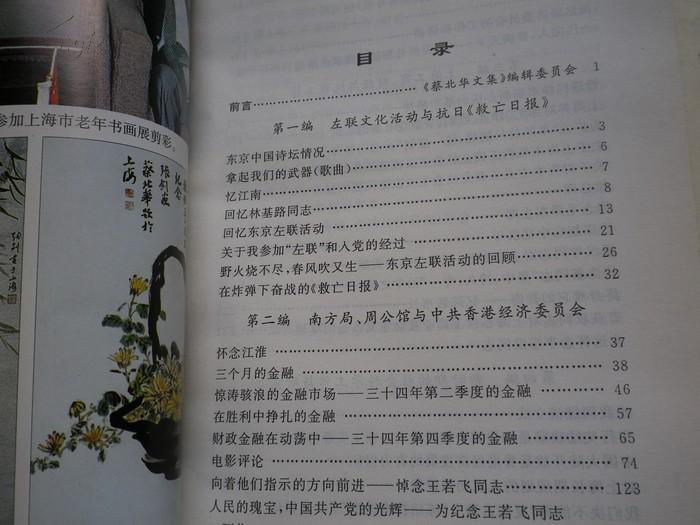 参加上海市老年书画展剪彩。
蔡北华敬於
上海
目 录
前言……《蔡北华文集》编辑委员会 1
第一编 左联文化活动与抗日《救亡日报》
东京中国诗坛情况…… 3
拿起我们的武器(歌曲)…… 6
忆江南…… 7
回忆林基路同志…… 8
回忆东京左联活动…… 13
关于我参加“左联”和入党的经过…… 21
野火烧不尽,春风吹又生——东京左联活动的回顾…… 26
在炸弹下奋战的《救亡日报》…… 32
第二编 南方局、周公馆与中共香港经济委员会
怀念江淮…… 37
三个月的金融…… 38
惊涛骇浪的金融市场——三十四年第二季度的金融…… 46
在胜利中挣扎的金融…… 57
财政金融在动荡中——三十四年第四季度的金融…… 65
电影评论…… 74
向着他们指示的方向前进——悼念王若飞同志…… 123
人民的瑰宝,中国共产党的光辉——为纪念王若飞同志